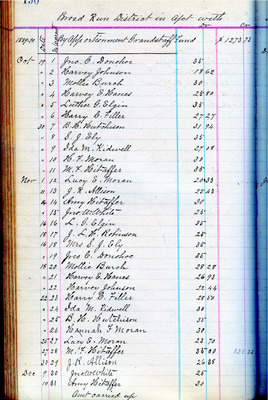 Broad Run District in Acct with
Dr Cr
1889-90 By Apportionment Grandstaff Fund $1273.72
Oct 1 Jno. C. Donohoe 35
2 Harvey Johnson 18 62
3 Mollie Burch 30
4 Harvey E. Hanes 28 80
5 Luther G. Elgin 35
6 Harry C. Filler 27 27
30 7 B. H. Hutchison 31 94
8 S. J. Ely 35
9 Ida M. Kidwell 27 08
10 H. F. Moran 30
11 M. F. Hitaffer 35
Nov 11 12 Lucy E. Moran 20 33
13 J. R. Allison 25 43
14 14 Amy Hitaffer 30
15 Jno. W. White 25
16 16 L. G. Elgin 35
18 17 J. L. H. Robinson 25
18 Mrs S. J. Ely 35
19 Jno C. Donohoe 35
20 Mollie Burch 28 28
21 Harvey E. Hanes 26 72
22 Harvey Johnson 22 44
22 23 Harry C. Filler 28 50
24 Ida M. Kidwell 30
25 B. H. Hutchison 35
26 Hannah F. Moran 30
25 27 Lucy E. Moran 23 70
27 28 M. F. Hitaffer 35 00
30 29 J. R. Allison 24 38
Dec 9 30 Jno. W. White 25
10 31 Amy Hitaffer 30
Amt carried up